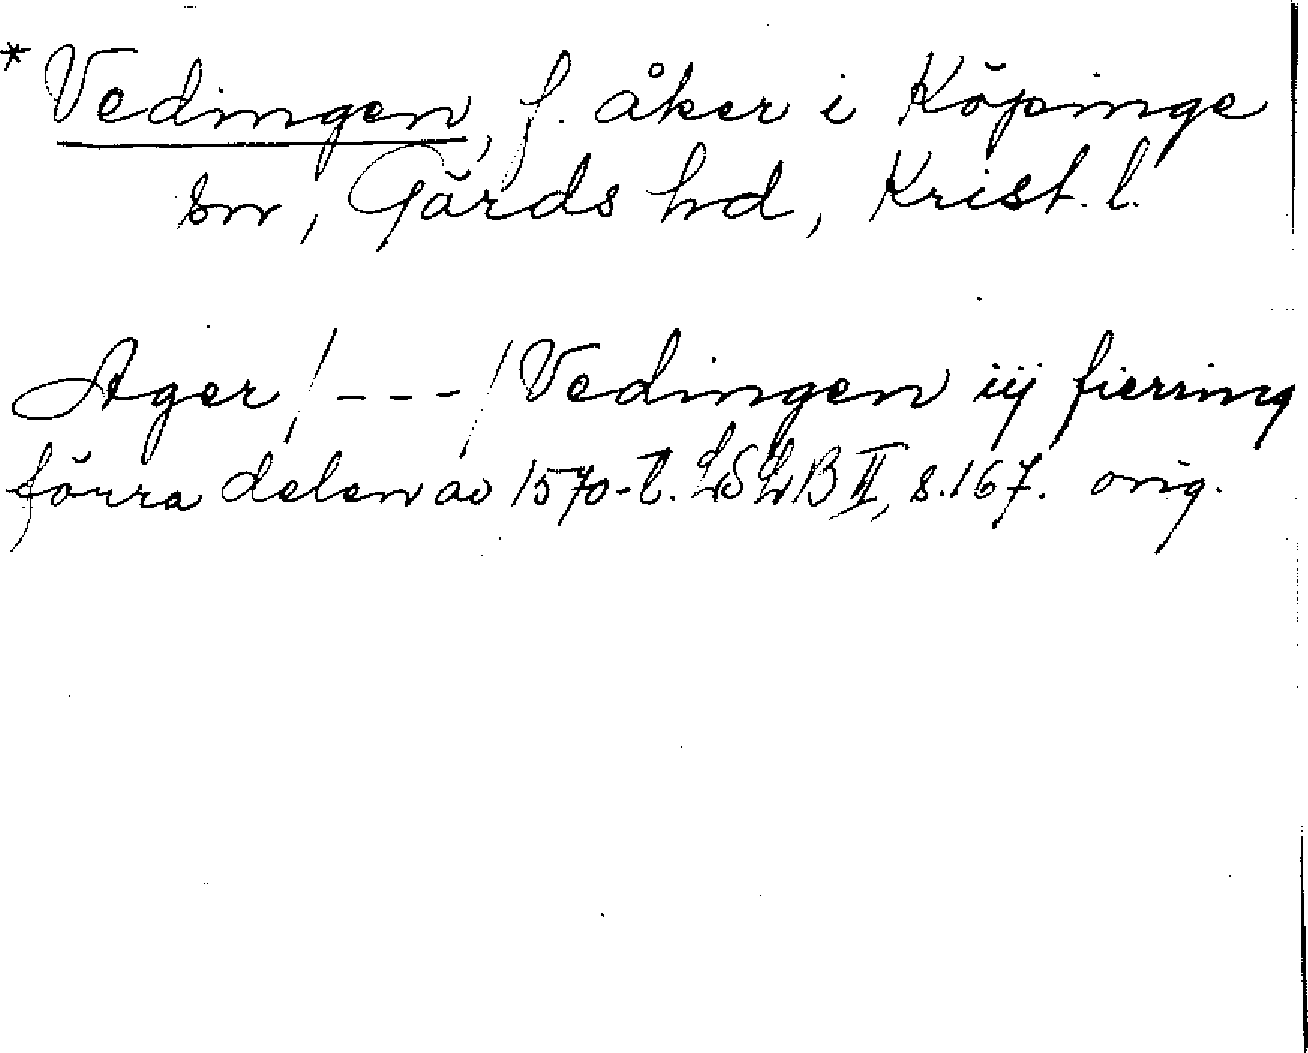 * Vedingen, f. åker i Köpinge
sn, Gärds hd, Krist. l.
Ager /---/ Vedingen iij fierring
förra delen av 1570-t. LSLB II, s. 167. orig.